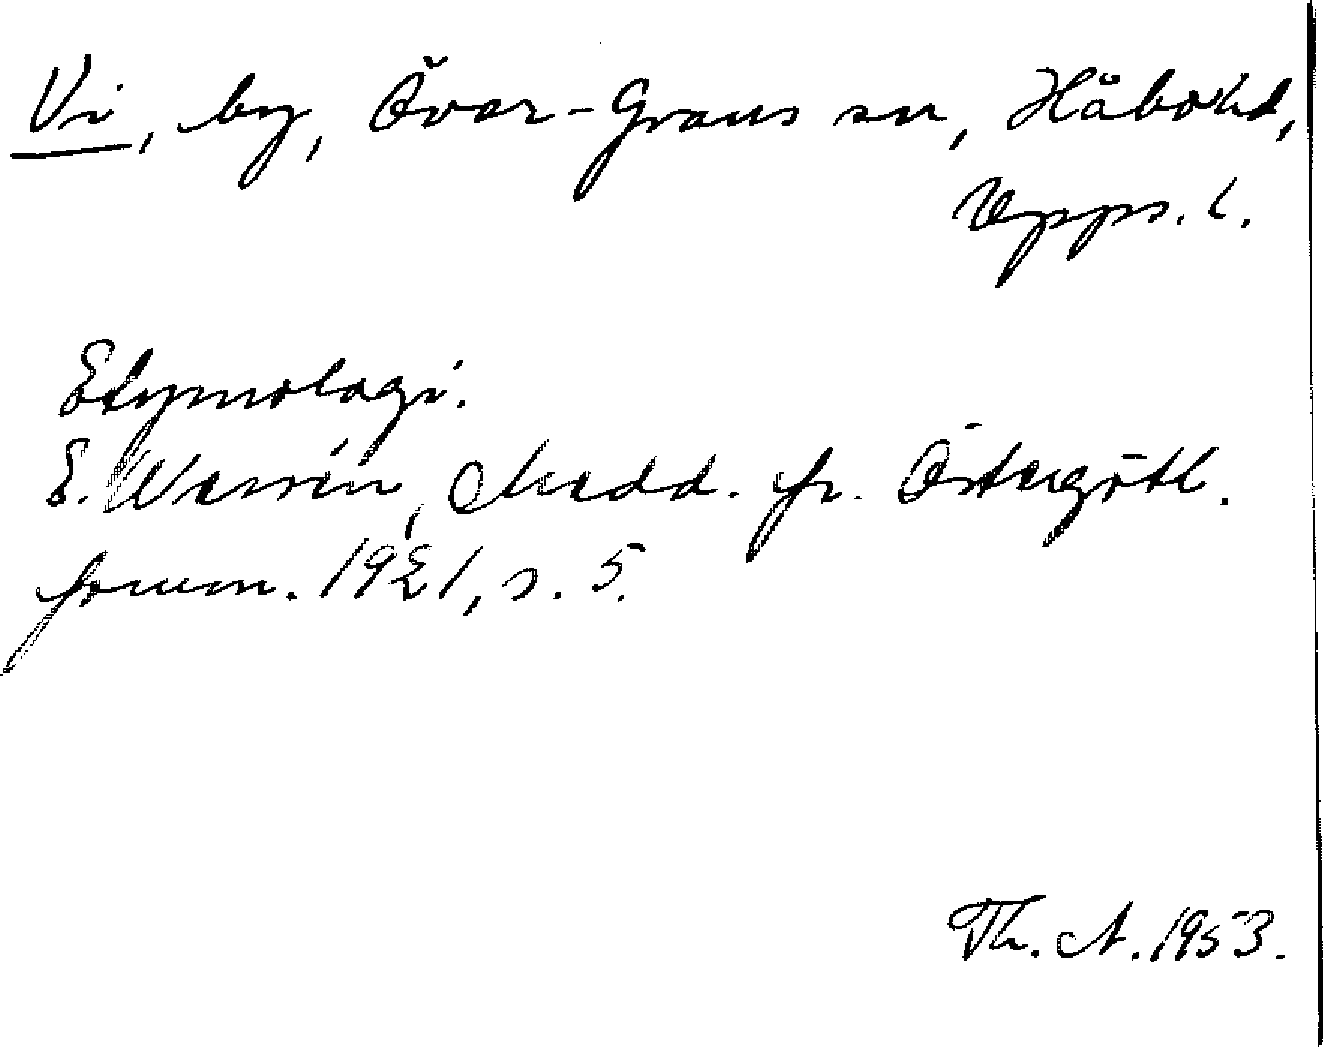 Vi, by, Över-Grans sn, Håbo hd,
Upps. l.
Etymologi.
E. Wessén, Medd. fr. Östergötl.
fornm. 1921, s. 5.
Th. A. 1953.